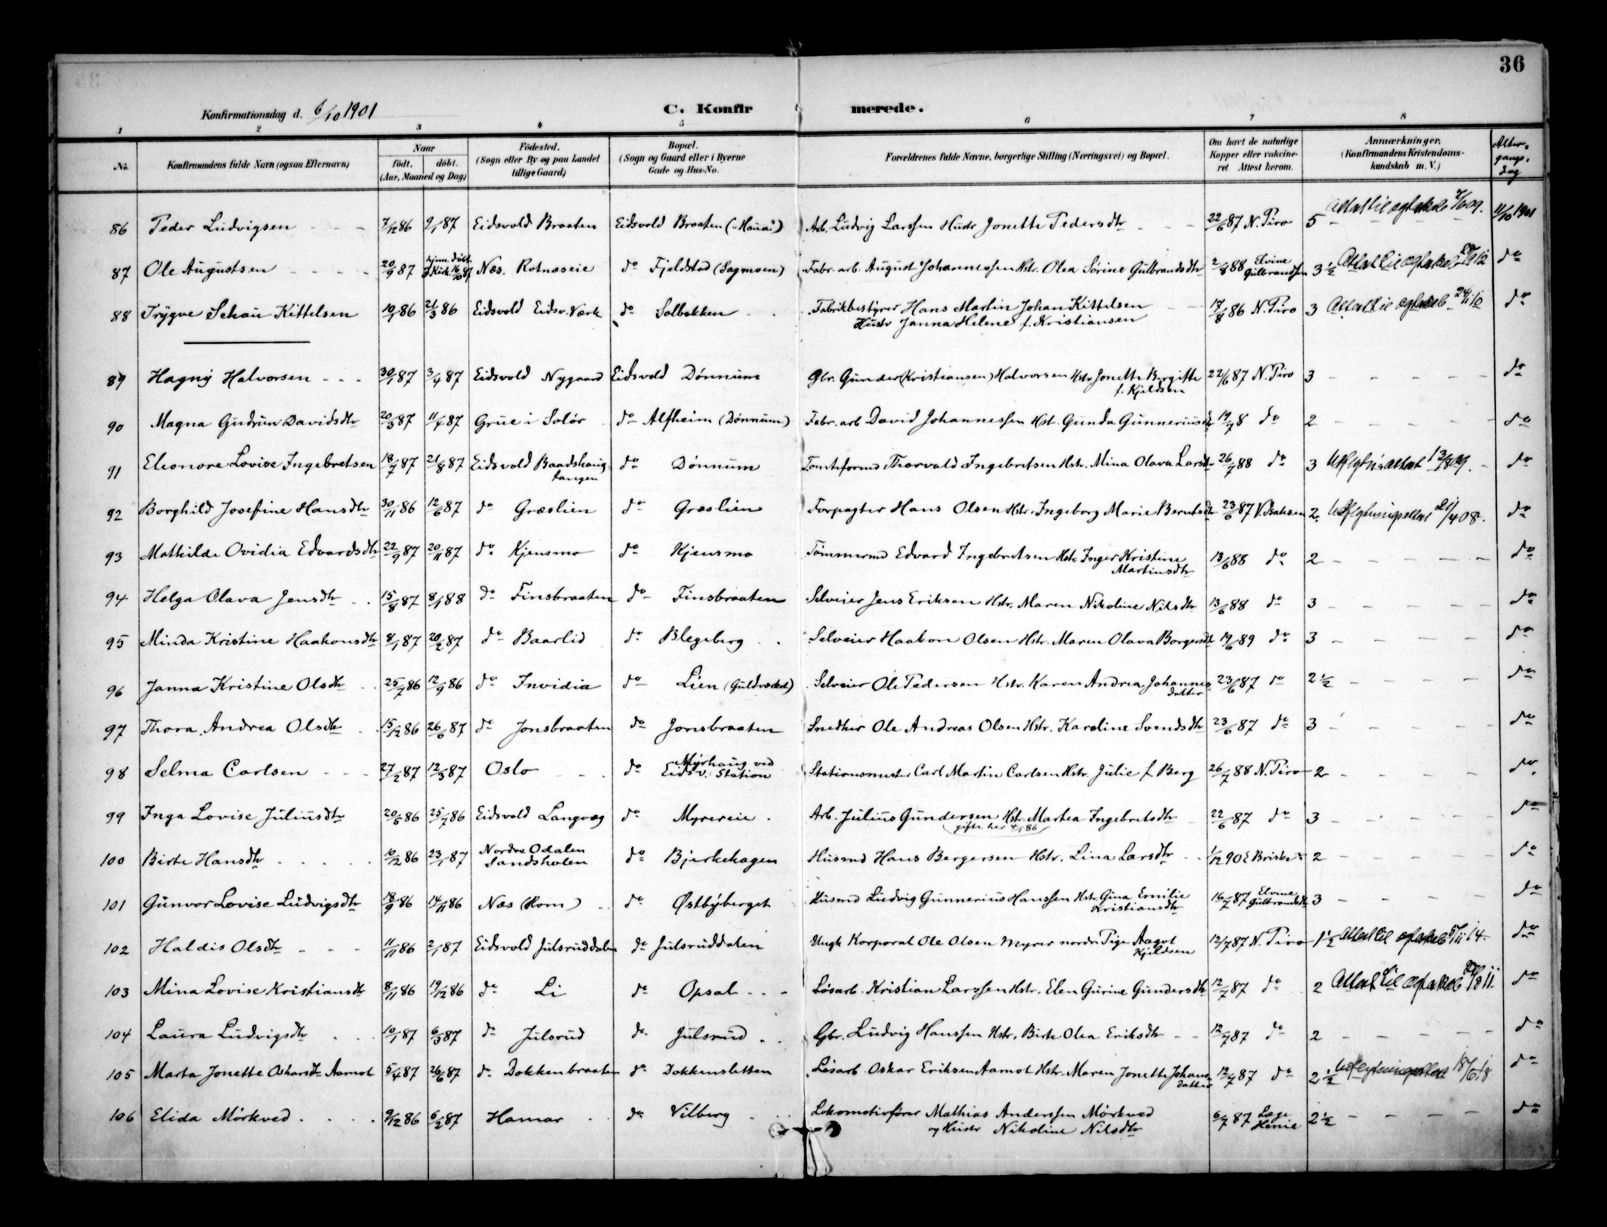 36
Konfirmationsdag d. 6/10 1901 C. Konfirmerede.
1 2 3 4 5 6 7 8
No. Konfirmandens fulde Navn (ogsaa Efternavn) Naar født. døbt. (Aar, Maaned og Dag) Fødested. (Sogn eller By og paa Landet tillige Gaard) Bopæl. (Sogn og Gaard eller i Byerne Gade og Hus-No. Forældrenes fulde Navne, borgerlige Stilling (Næringsvei) og Bopæl. Om havt de naturlige Kopper eller vaccineret Attest herom. Anmærkninger. (Konfirmandens Kristendomskundskab m. V.) Altergangsdag
86 Peder Ludvigsen - - 7/12 86 2/1 87 Eidsvold Braaten Eidsvold Braaten Arb. Ludvig Larssen Hustr Jonette Pedersdtr 22/6 87 N. Piro 5 - 11/10 1901
87 Ole Augustsen - - - - 20/9 87 Næs. Rotnæseie do Fjeldstad (Sagmoen) Fabr. arb. August Johannessen Hstr. Olea Sørine Gulbrandsdtr 2/8 88 Elvine Gulbrandsen 3 1/2 do
88 Trygve Schau Kittelsen 10/1 86 21/3 86 Eidsvold Eidsv. Værk do Solbakken Fabrikbestyrer Hans Martin Johan Kittelsen
Hustr Janna Helene f. Kristiansen 17/8 86 N. Piro 3 do
89 Hagny Halvorsen - - - 30/1 87 3/4 87 Eidsvold Nygaard Eidsvold Dønnum Gbr. Gunder (Kristiansen) Halvorsen Hstr Jonette Birgitte
f. Kjeldsen 22/6 87 N. Piro 3 - - - - do
90 Magna Gudrun Davidsdtr 20/3 87 11/4 87 Grue i Solør do Alfheim (Dønnum) Fabr. arb David Johannessen Hst. Gunda Gunneriusd. do 2 - - - - do
91 Eleonore Lovise Ingebretsen 18/7 87 21/8 87 Eidsvold Baadshaug-
tangen do Dønnum Tomteformd Thorvald Ingebretsen Hstr. Mina Olava Larsdtr 26/7 88 do 3 do
92 Borghild Josefine Hansdtr 30/11 86 12/6 87 do Græslien do Græslien Forpagter Hans Olsen Hstr. Ingeborg Marie Berntsdtr 23/6 87 2 do
93 Mathilde Ovidia Edvardsdtr 22/9 87 20/11 87 do Kjensmo do Kjensmo Tømmermd Edvard Ingebretsen Hstr. Inger Kristine
Martinsdtr 13/6 88 do 2 - - - - do
94 Helga Olava Jensdtr 15/8 87 8/1 88 do Finsbraaten do Finsbraaten Selveier Jens Eriksen Hstr. Maren Nikoline Nilsdtr 13/6 88 do 3 - - - - do
95 Minda Kristine Haakonsdtr 8/1 87 20/2 87 do Baarlid do Blegeberg Selveier Haakon Olsen Hstr. Maren Olava Borgersdtr 19/6 89 do 3 - - - - do
96 Janna Kristine Olsdtr 25/7 86 12/9 86 do Invidia do Lien (Guldværket) Selveier Ole Pedersen Hstr. Karen Andrea Johannes
datter 23/6 87 do 2 1/2 - - - - do
97 Thora Andrea Olsdtr 15/12 86 26/6 87 do Jonsbraaten do Jonsbraaten Snedker Ole Andreas Olsen Hstr. Karoline Svendsdtr 23/6 87 do 3 - - - - do
98 Selma Carlsen - - - 27/2 87 12/3 87 Oslo do Myrhaug ved
Eidsv. Station Stationsmstr Carl Martin Carlsen Hstr. Julie f. Berg 26/7 88 N. Piro 2 - - - - do
99 Inga Lovise Juliusdtr 20/5 86 25/7 86 Eidsvold Langvæg do Myrereie Arb. Julius Gundersen Hstr. Martea Ingebretsdtr 22/6 87 do 3 - - - - do
100 Birte Hansdtr 10/12 86 23/1 87 Nordre Odalen
Sandsholen do Bjerkehagen Husmd Hans Bergersen Hstr. Lina Larsdtr 1/12 90 2 - - - - do
101 Gunvor Lovise Ludvigsdtr 18/9 86 14/11 86 Næs (Rom) do Østbyberget Husmd Ludvig Gunnerius Hanssen Hstr. Gina Emilie
Kristiansdtr 14/7 87 Elvine Gulbrandsdtr 3 - - - - do
102 Haldis Olsdtr - - - 11/11 86 2/1 87 Eidsvold Julsruddalen do Julsruddalen Ungk Korporal Ole Olsen Myrer nordre Pige Aagot
Kjeldsen 12/7 87 N. Piro 1 1/2 do
103 Mina Lovise Kristiansdtr 8/11 86 19/12 86 do Li do Opsal Løsarb. Kristian Larssen Hstr. Elen Gurine Gundersdtr 12/7 87 do 2 do
104 Laura Ludvigsdtr 10/1 87 6/3 87 do Julsrud do Julsrud Gbr. Ludvig Hanssen Hstr. Birte Olea Eriksdtr 12/7 87 do 2 - - - - do
105 Marta Jonette Oskarsdtr Aamot 5/4 87 26/6 87 do Dokkenbraaten do Dokkensletten Løsarb Oskar Eriksen Aamot Hstr. Maren Jonette Johans
datter 12/7 87 do 2 1/2 do
106 Elida Mørkved 9/12 86 6/2 87 Hamar do Vilberg Lokomotivfører Mathias Anderssen Mørkved
og Hustr Nikoline Nilsdtr 6/7 87 Læge 2 1/2 - - - do